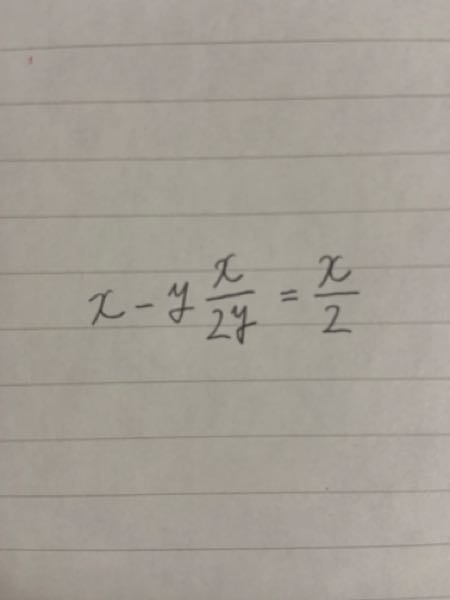 x - y \frac{x}{2y} = \frac{x}{2}